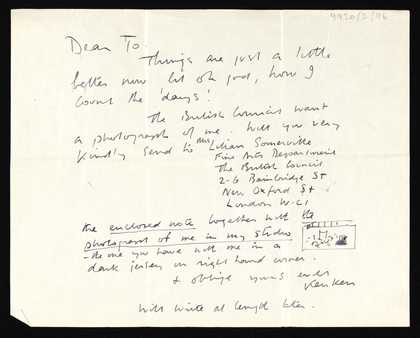 9920/2/96
Dear To.
Things are just a little
better now but oh god, how I
count the 'days'!
The British Council want
a photograph of me. Will you very
kindly send to Mrs Lilian Somerville
Fine Arts Department
The British Council
2-6 Bainbridge St
New Oxford St
London W.C.1
the enclosed note together with the
photograph of me in my studio
- the one you have with me in a
dark jersey in right hand corner.
& oblige yours ever
Kenken
Will write at length later.